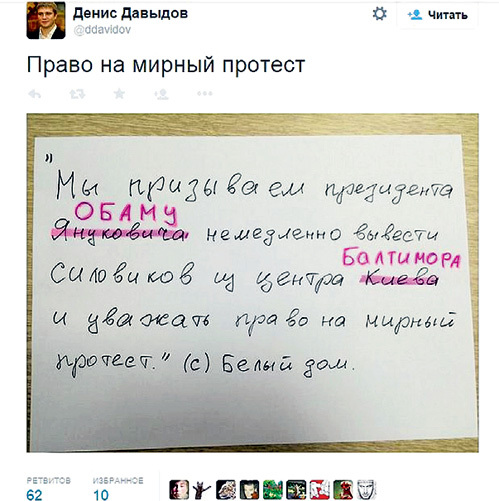 Денис Давыдов
@ddavidov
Читать
Право на мирный протест
"
Мы призываем президента
ОБАМУ
Януковича немедленно вывести
БАЛТИМОРА
силовиков из центра Киева
и уважать право на мирный
протест." (с) Белый дом.
РЕТВИТОВ
ИЗБРАННОЕ
62
10